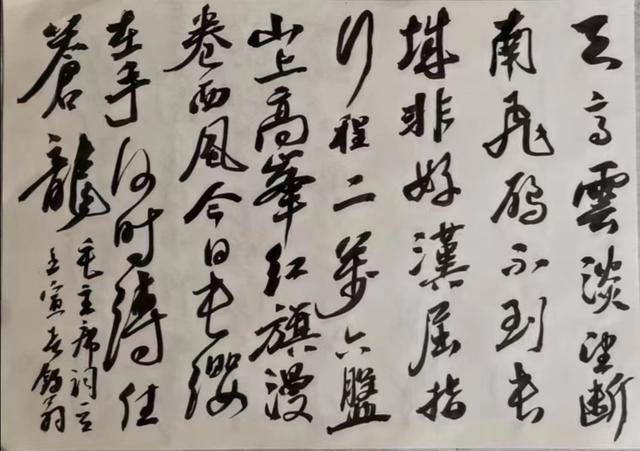 天高雲淡望断
南飛雁不到长
城非好漢屈指
行程二萬六盤
山上高峯红旗漫
卷西風今日长缨
在手何时縛住
蒼龍
毛主席词
壬寅春